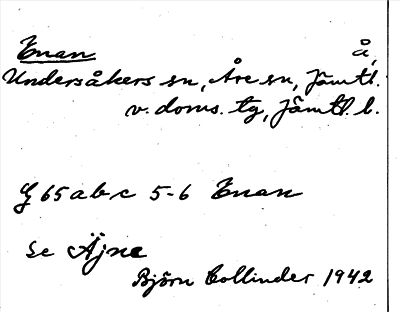 Enan å,
Undersåkers sn, Åre sn, Jämtl.
v. doms. tg, Jämtl. l.
G 65 a b, c 5-6 Enan
se Äjne
Björn Collinder 1942